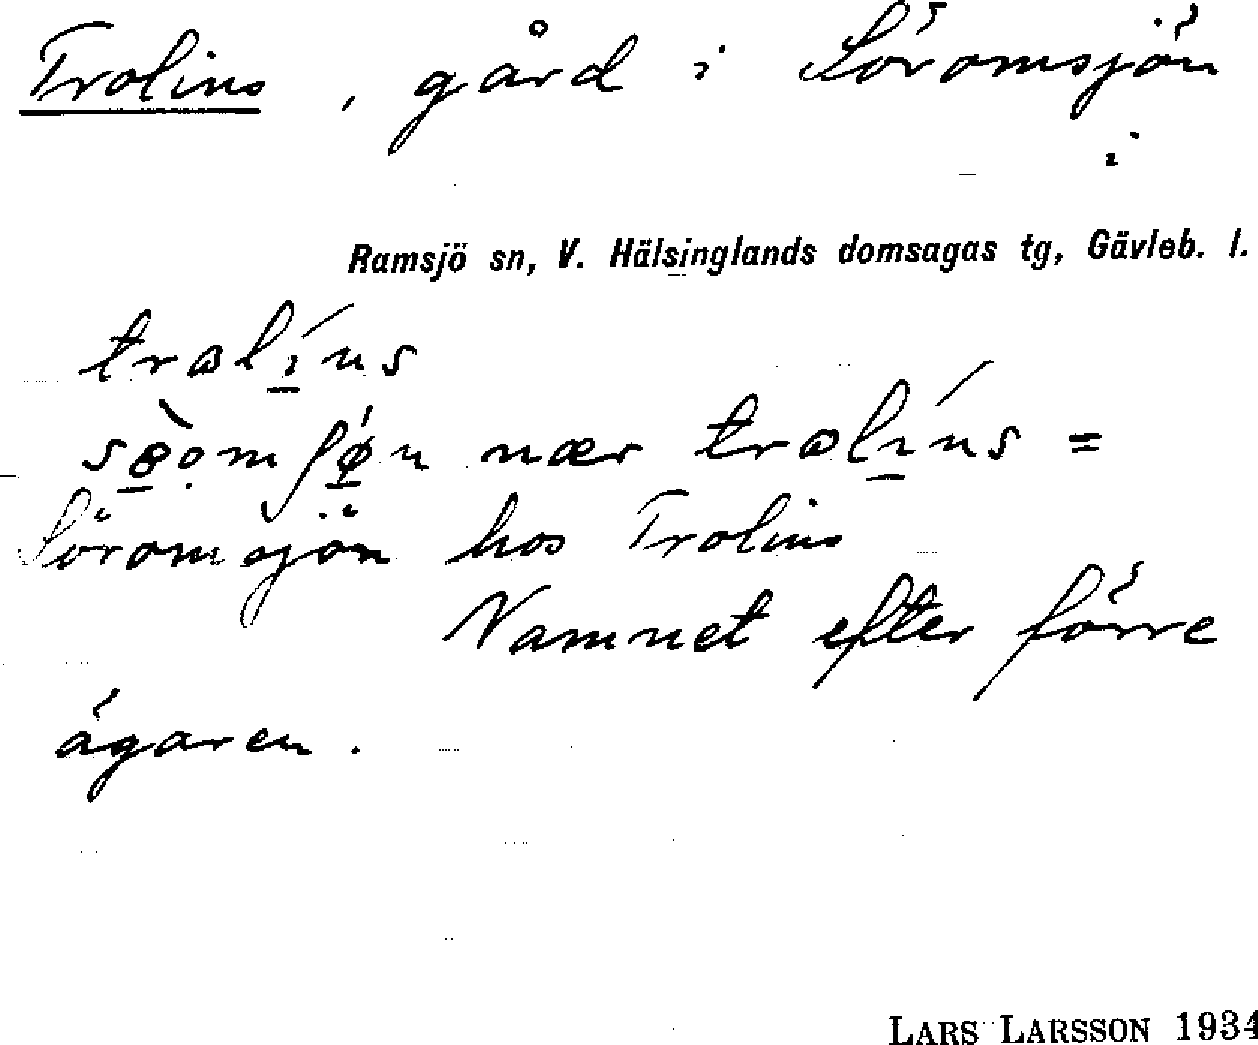 Trolins, gård i Söromsjön
i
Ramsjö sn, V. Hälsinglands domsagas tg, Gävleb. l.
Söromsjön hos Trolins
Namnet efter förre
ägaren.
LARS LARSSON 1934